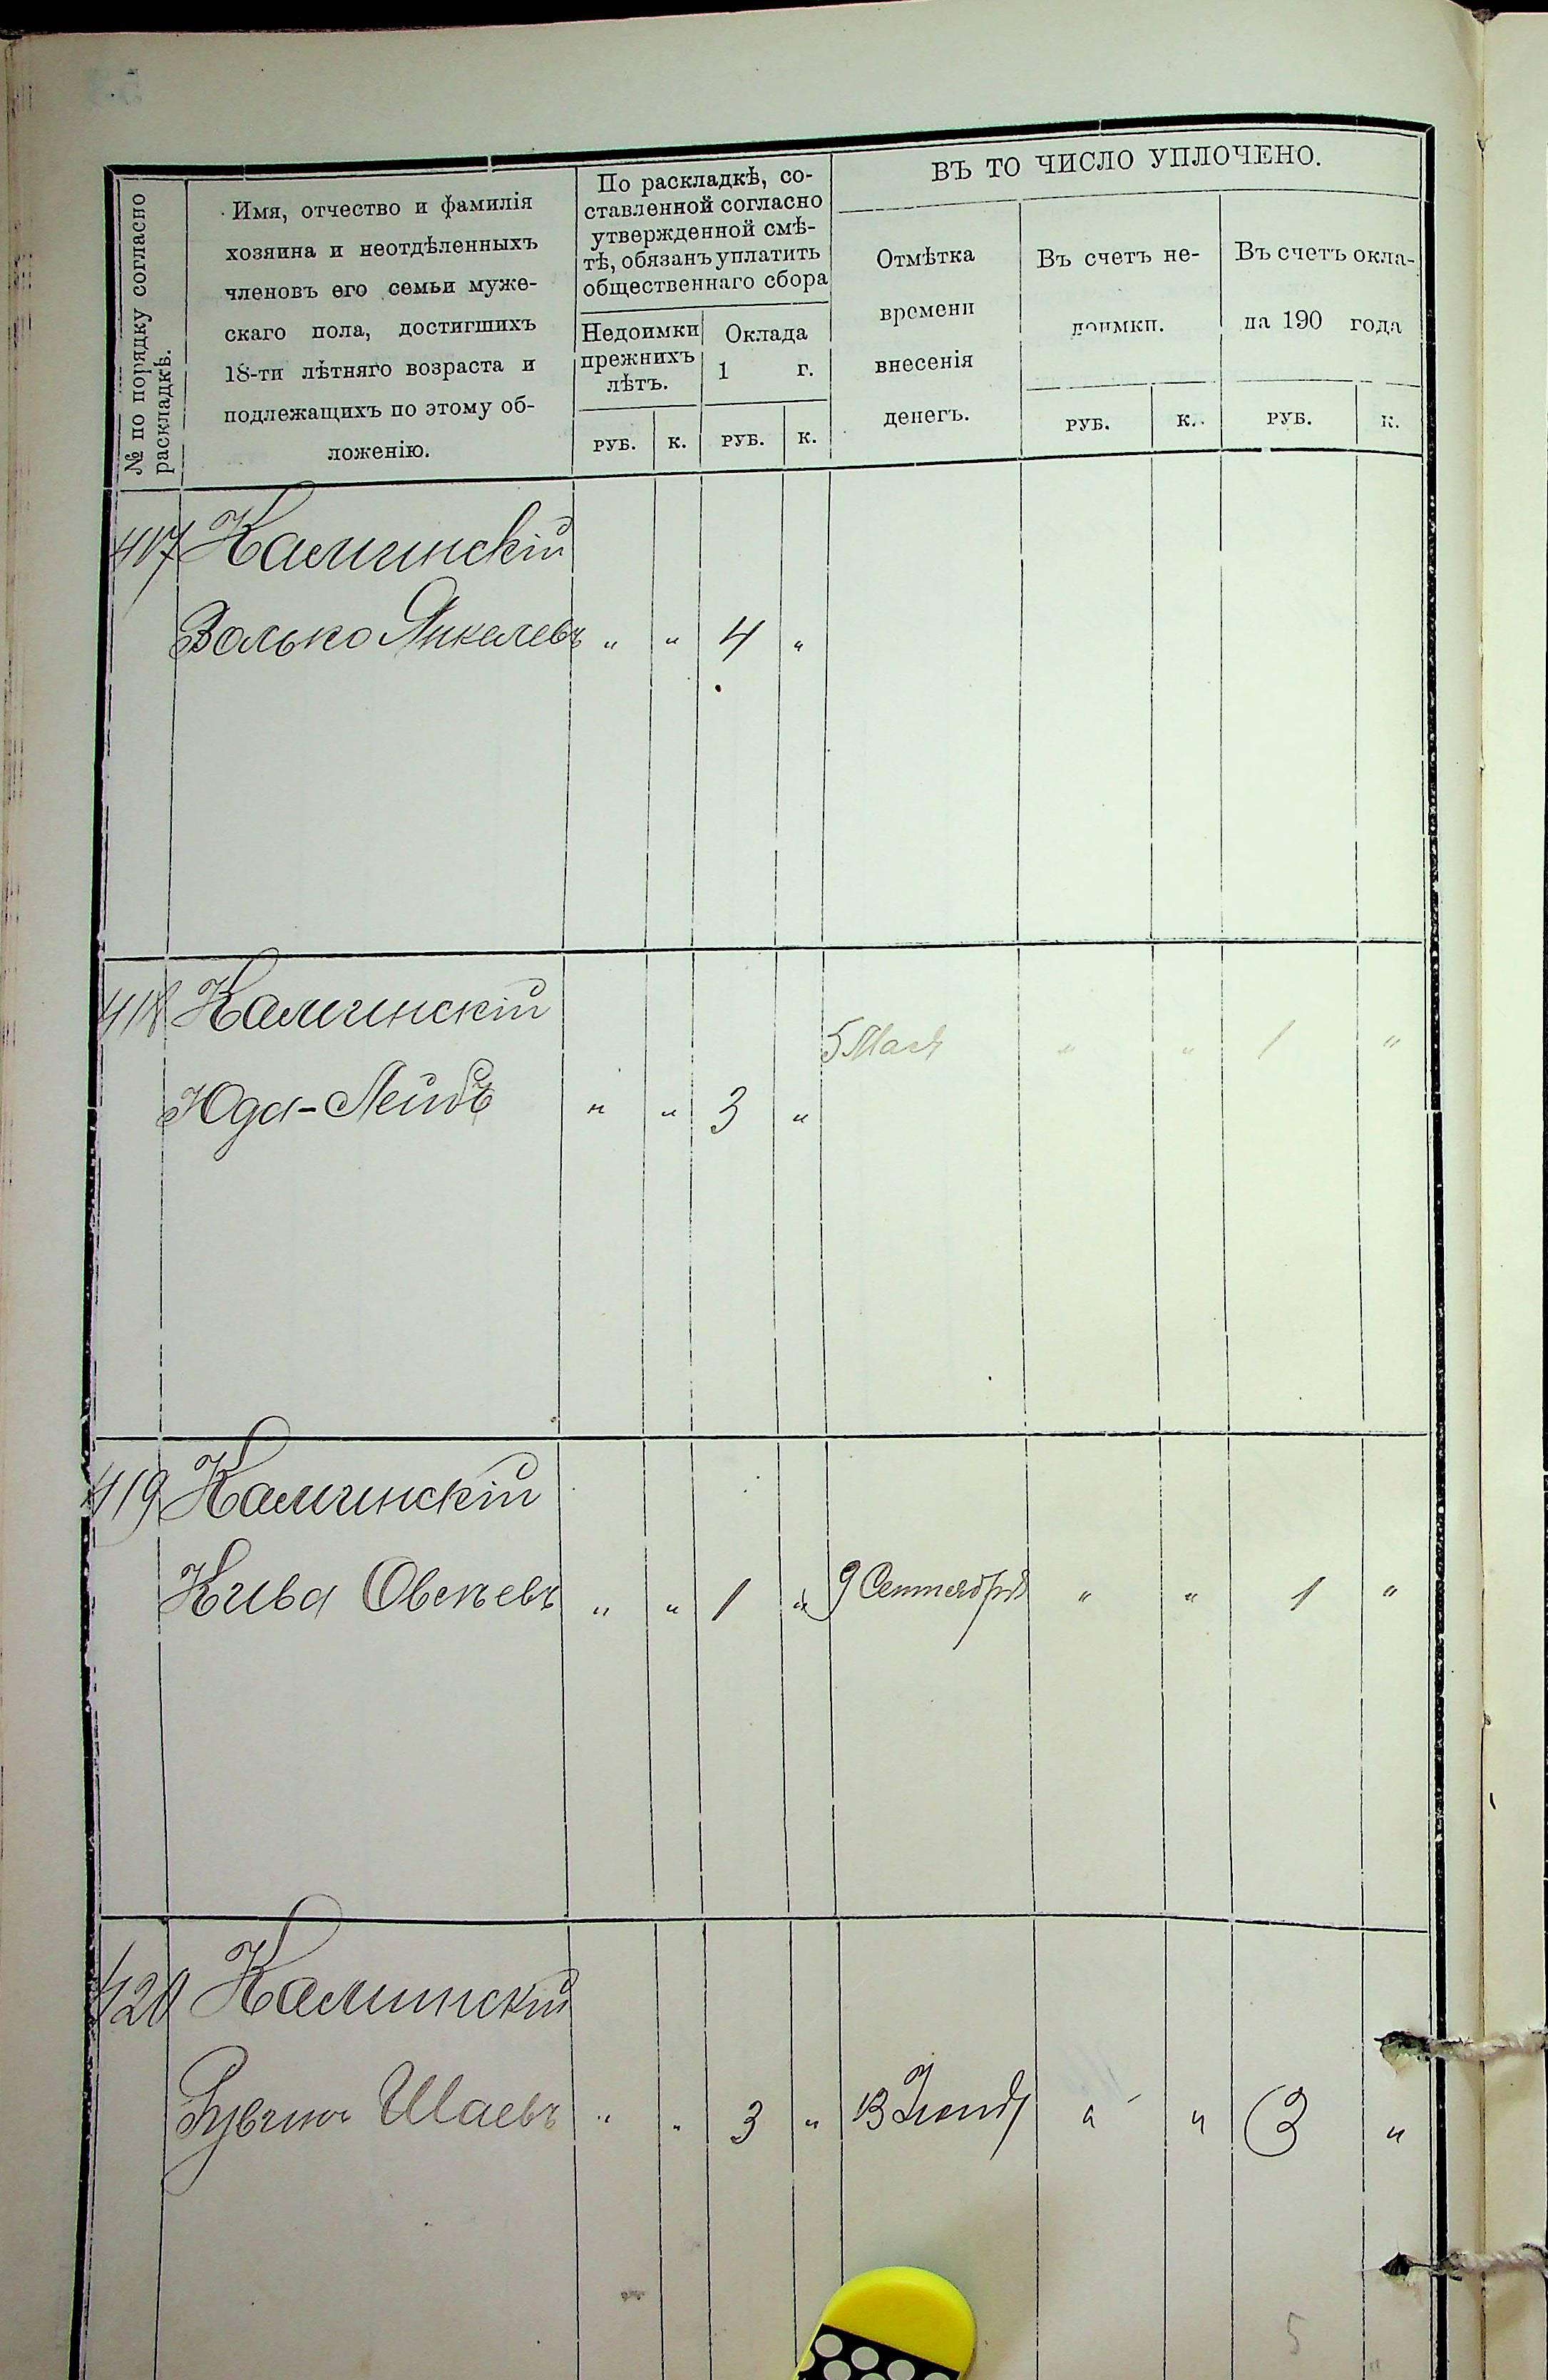 № по порядку согласно
раскладкѣ.
Имя, отчество и фамилія
хозяина и неотдѣленныхъ
членовъ его семьи муже-
скаго пола, достигшихъ
18-ти лѣтняго возраста и
подлежащихъ по этому об-
ложенію.
По раскладкѣ, со-
ставленной согласно
утвержденной смѣ-
тѣ, обязанъ уплатить
общественнаго сбора
Недоимки
прежнихъ
лѣтъ.
Оклада
1 г.
РУБ. К. РУБ. К.
ВЪ ТО ЧИСЛО УПЛОЧЕНО.
Отмѣтка
времени
внесенія
денегъ.
Въ счетъ не-
доимки.
РУБ. К.
Въ счетъ окла-
да 190 года
РУБ. К.
417 Калминскій
Волько Янкелевъ " " 4 "
418 Калминскій
5 Мая " " 1 "
Юда-Лейбъ " " 3 "
419 Калминскій
Кива Овсеевъ " " 1 " 9 Сентября " " 1 "
420 Калминскій
Рувинъ Шаевъ " " 3 " 13 Іюня " " 3 "
5